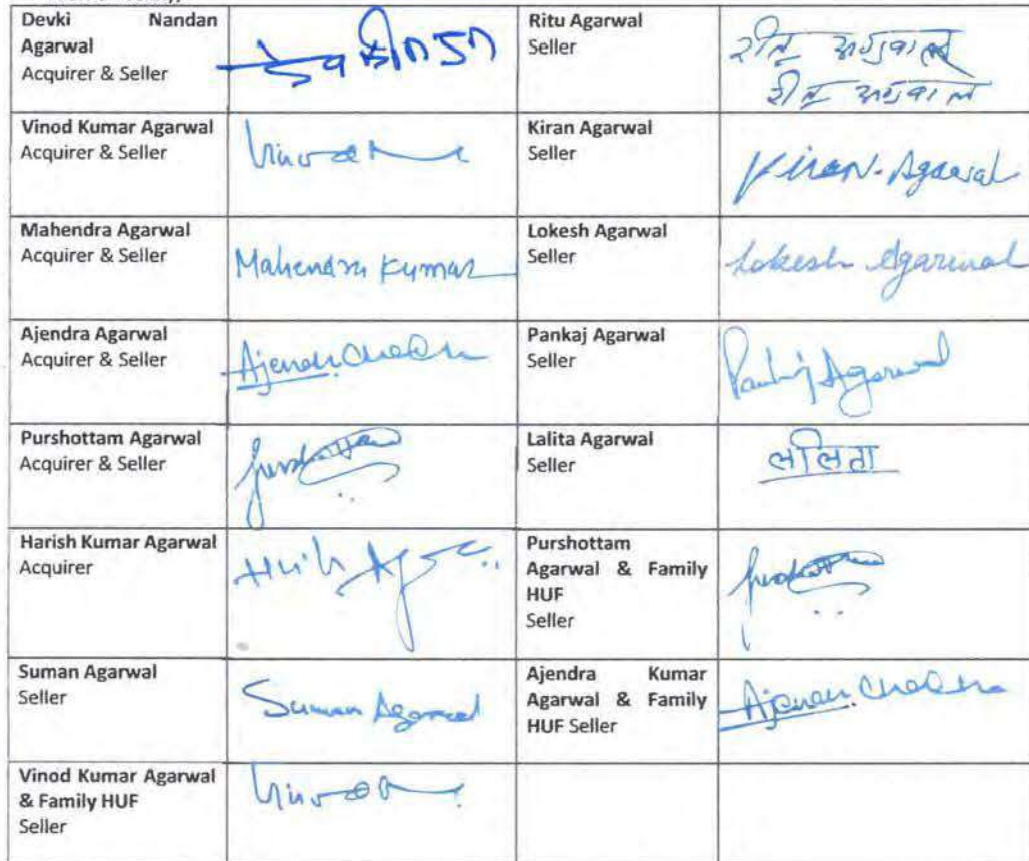 Devki Nandan
Agarwal
Acquirer & Seller
Ritu Agarwal
Seller
रीतु अग्रवाल
रीतु अग्रवाल
Vinod Kumar Agarwal
Acquirer & Seller
Kiran Agarwal
Seller
Kiran Agarwal
Mahendra Agarwal
Acquirer & Seller
Mahendra Kumar
Lokesh Agarwal
Seller
Lokesh Agarwal
Ajendra Agarwal
Acquirer & Seller
Pankaj Agarwal
Seller
Pankaj Agarwal
Purshottam Agarwal
Acquirer & Seller
Lalita Agarwal
Seller
ललिता
Harish Kumar Agarwal
Acquirer
Purshottam
Agarwal & Family
HUF
Seller
Suman Agarwal
Seller
Suman Agarwal
Ajendra Kumar
Agarwal & Family
HUF Seller
Vinod Kumar Agarwal
& Family HUF
Seller